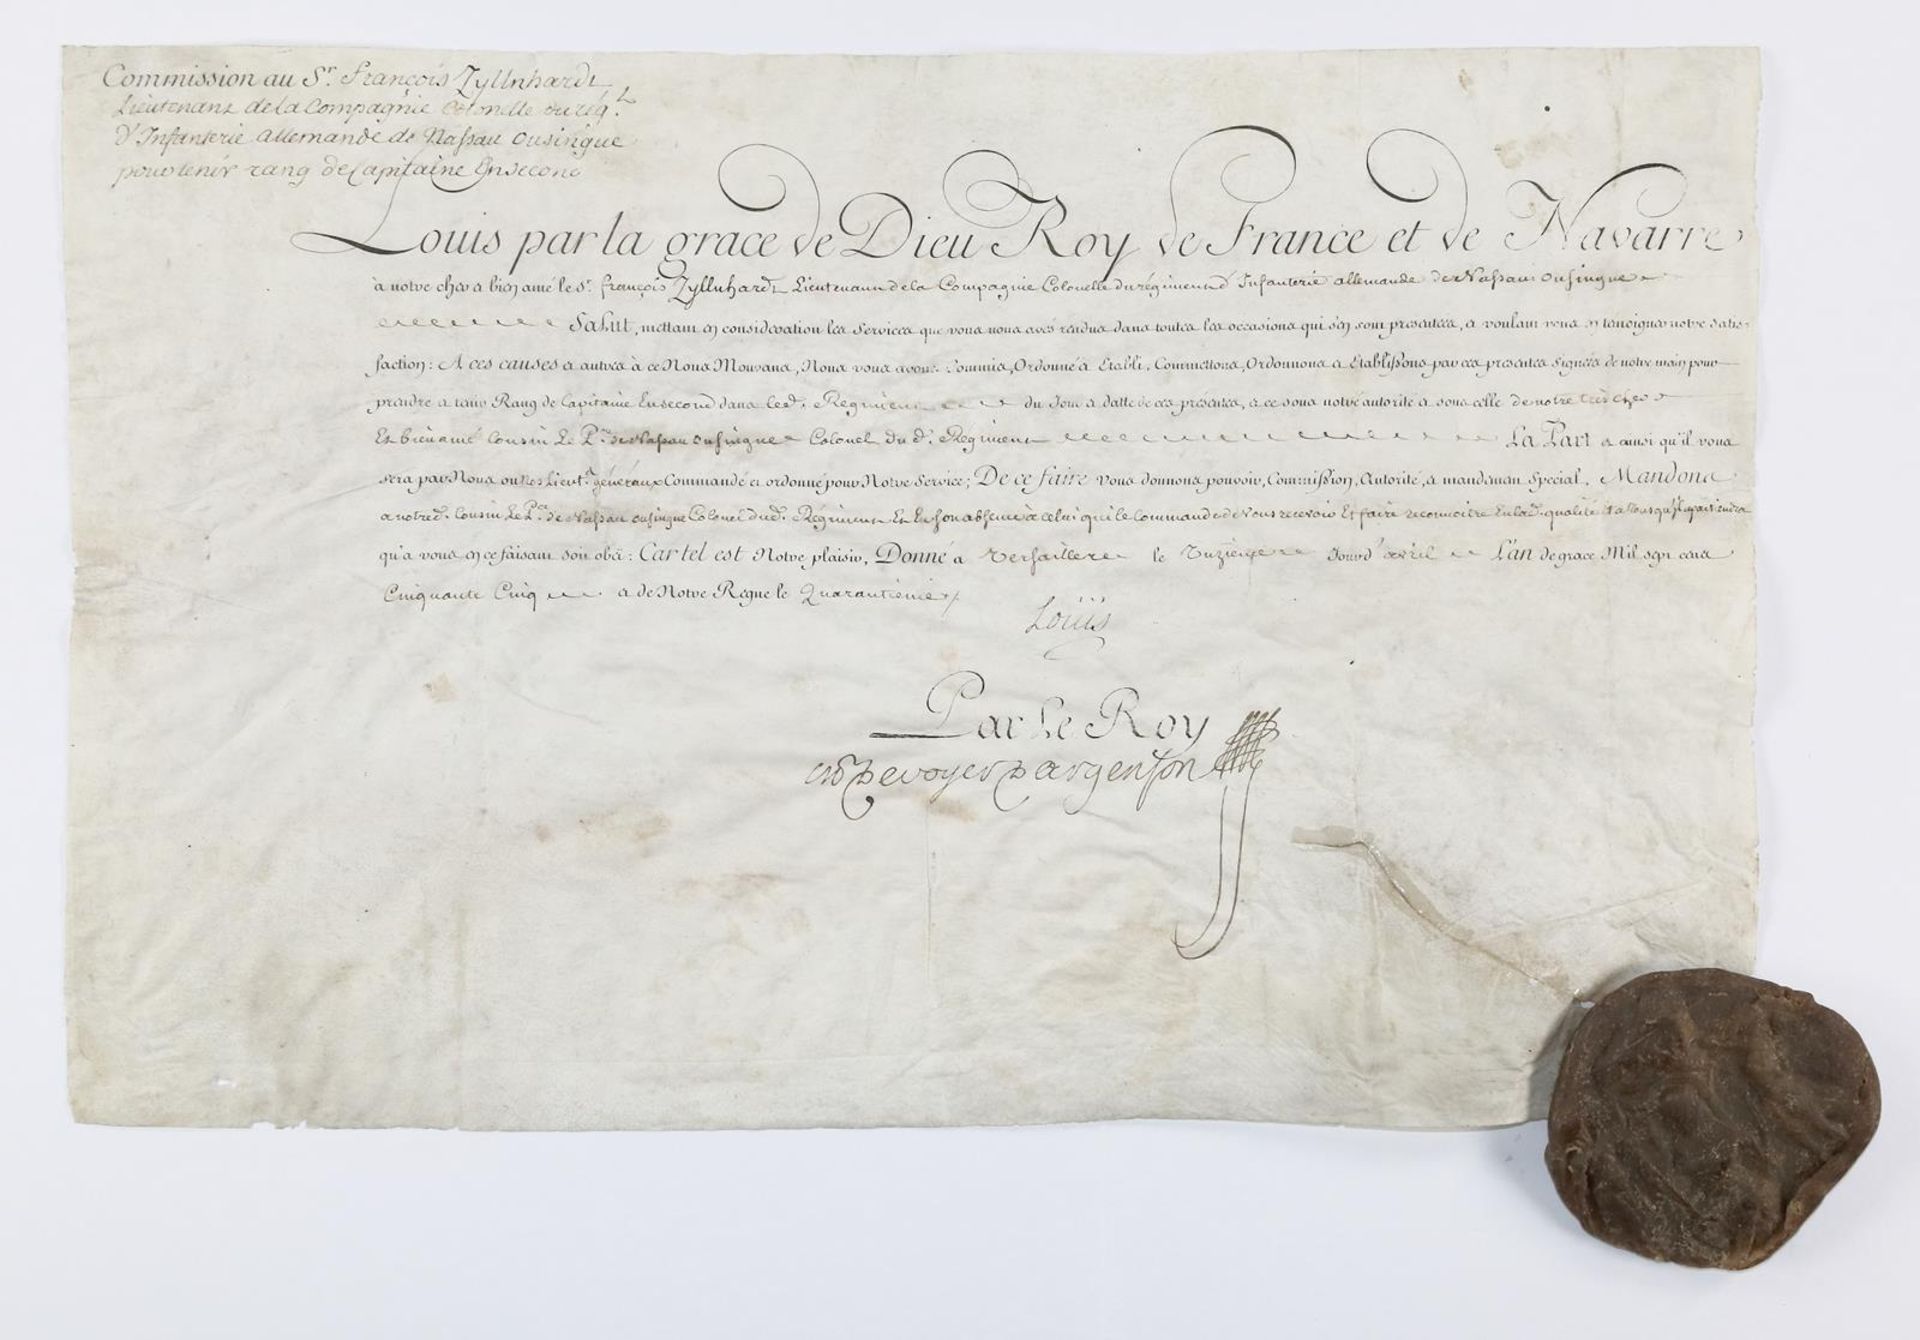 Commission au Sr. François Zyllnhardt
Lieutenant de la Compagnie Colonelle du régt.
D'Infanterie allemande de Nassau Ousingue
pour tenir rang de Capitaine En second
Louis par la grace de Dieu Roy de France et de Navarre
à notre cher et bien amé le Sr. françois Zyllnhardt Lieutenant de la Compagnie Colonelle du régiment d'Infanterie allemande de Nassau Ousingue
Salut, mettant en consideration les Services que vous nous avés rendus dans toutes les occasions qui s'en sont presentées, et voulant vous en temoigner notre satis-
faction: A ces causes et autres à ce Nous Mouvans, Nous vous avons Commis, Ordonné et Etabli, Commettons, Ordonnons et Etablissons par ces presentes Signées de notre main pour
prendre et tenir Rang de Capitaine En second dans led. Regiment du Jour et datte de ces presentes, et ce sous notre autorité et sous celle de notre très cher
Et bien amé Cousin Le Pce. de Nassau Ousingue Colonel du d. Régiment La Part et ainsi qu'il vous
sera par Nous ou Nos Lieut.s généraux Commandé et ordonné pour Notre Service; De ce faire vous donnons pouvoir, Commission, Autorité, et mandement Special, Mandons
a notred. Cousin Le Pce. de Nassau Ousingue Colonel dud. Régiment Et En son absence à celui qui le Commande de Vous recevoir Et faire reconnoitre En lad. qualité Et a tous qu'il apartiendra
qu'a vous en ce faisant soit obéi: Car tel est Notre plaisir, Donné à Versailles le Onzieme Jour d'avril L'an de grace Mil sept cens
Cinquante Cinq et de Notre Regne le Quarantieme
Louis
Par Le Roy
De voyer D argenson